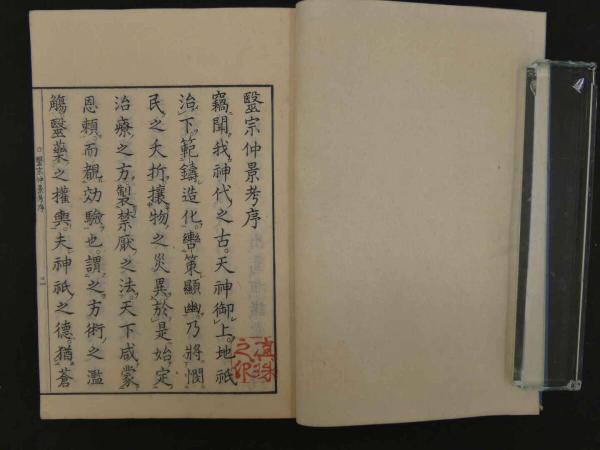 毉宗仲景考序
竊聞我神代之古天神御上地祇
治下範鑄造化轡策顯幽乃將憫
民之夭折攘物之災異於是始定
治療之方製禁厭之法天下咸蒙
恩賴而覩効驗也謂之方術之濫
觴毉藥之權輿夫神祇之德猶蒼
毉宗仲景考序
一
之印